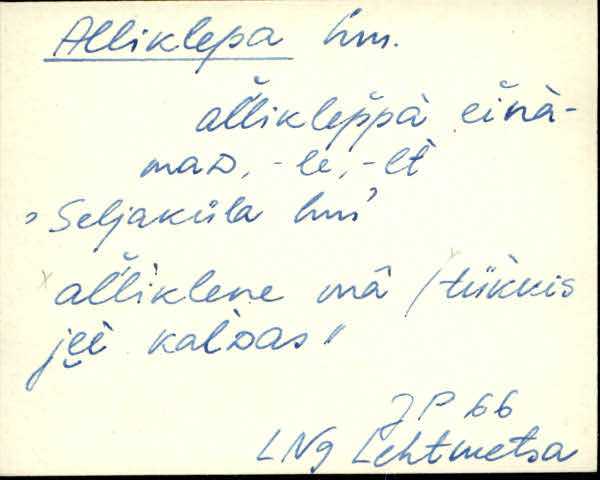 Alliklepa hm.
al̆likleppà einà-
maᴅ, -le, -lt
› Seljaküla hm'
al̆liklene mā / tükkis
jee kalᴅas"
JP 66
LNg Lehtmetsa